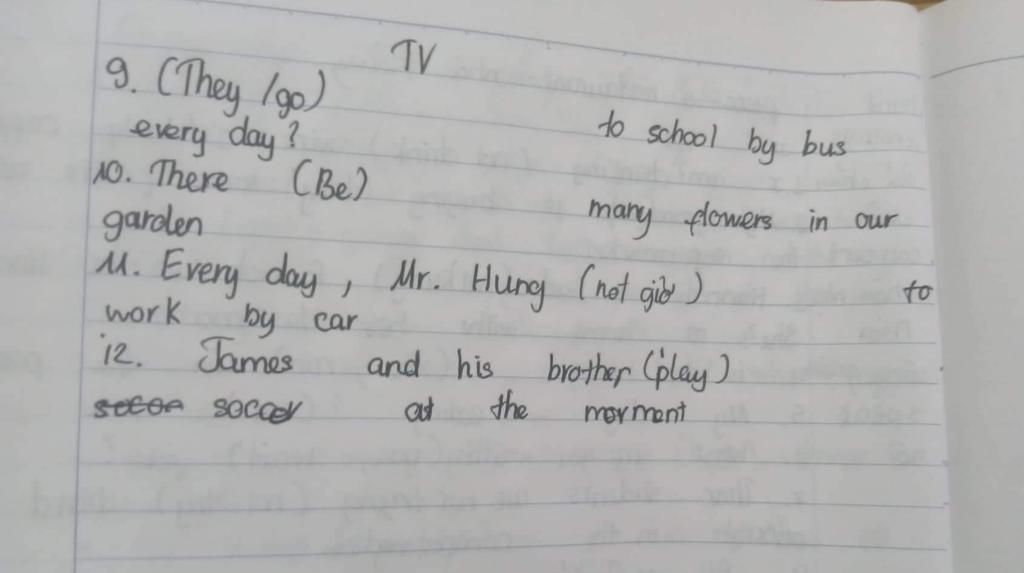 TV
9. (They / go) to school by bus
every day?
10. There (Be) many flowers in our
garden
11. Every day, Mr. Hung (not giờ) to
work by car
12. James and his brother (play)
soccer at the morment